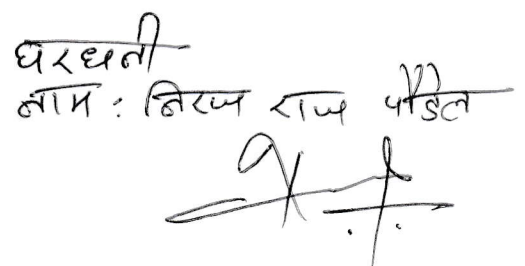 घरधनी
नाम: निरज राज पौडेल